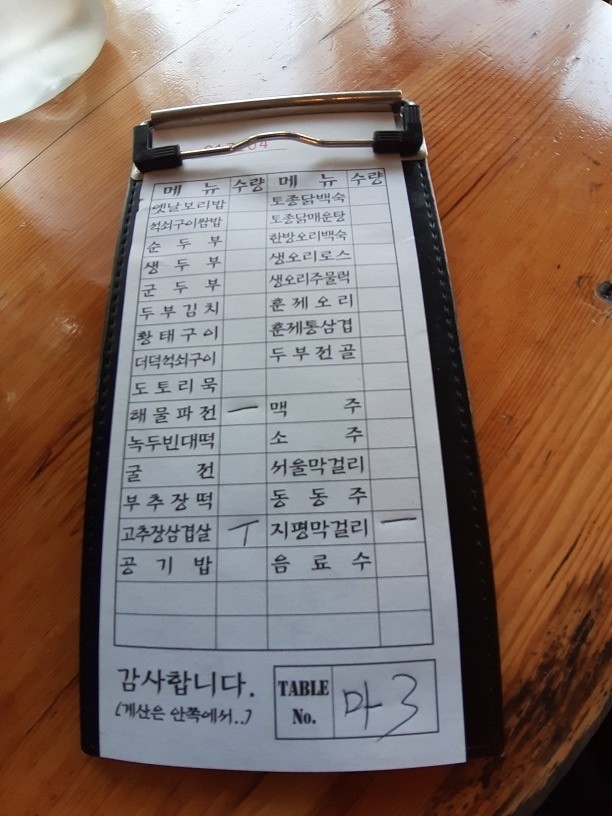 메 뉴 수량 메 뉴 수량
옛날보리밥 토종닭백숙
헉쇠구이쌈밥 토종닭매운탕
순 두 부 한방오리백숙
생 두 부 생오리로스
군 두 부 생오리주물럭
두부김치 훈제오리
황태구이 훈제통삼겹
더덕헉쇠구이 두부전골
도토리묵
해물파전 一 맥 주
녹두빈대떡 소 주
굴 전 서울막걸리
부추장떡 동 동 주
고추장삼겹살 ㅜ 지평막걸리 一
공 기 밥 음 료 수
감사합니다.
(계산은 안쪽에서..)
TABLE No. 마3